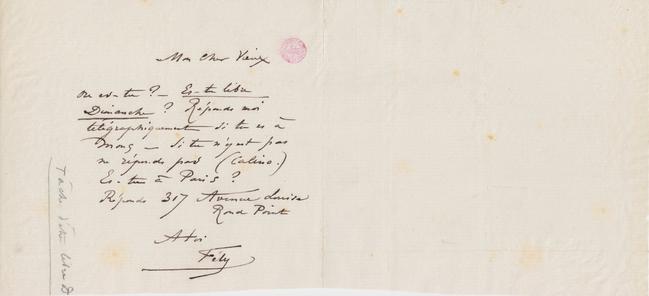 Mon Cher Vieux
où es-tu ? — Es-tu libre
Dimanche ? Réponds moi
télégraphiquement si tu es à
Mons — si tu n'y est pas
ne réponds pas (Calino.)
Es-tu à Paris ?
Réponds 317 Avenue Louise
Rond Point
A toi
Fély
Tâche d'être libre D